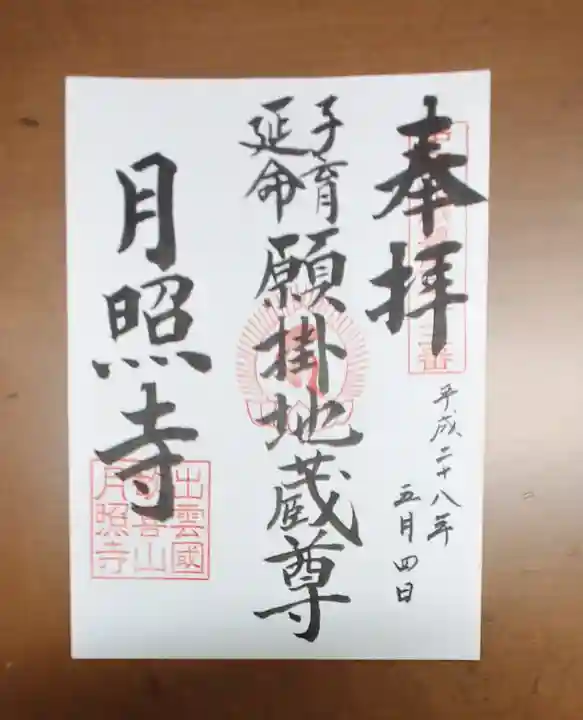 奉拝
平成二十八年
五月四日
子育
延命
願掛地蔵尊
月照寺
出雲國
月照寺